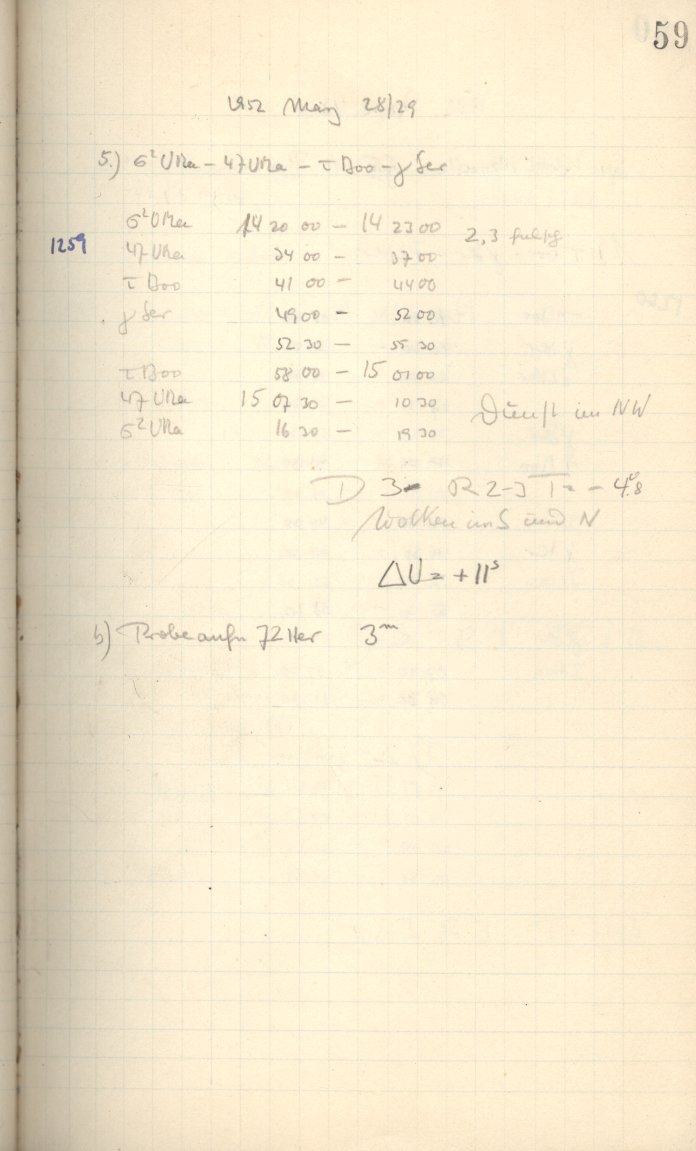 59
1952 März 28/29
5.) σ² UMa – 47 UMa – τ Boo – γ Ser
σ² UMa 14 20 00 – 14 23 00 2,3 falsch
1259
47 UMa 34 00 – 37 00
τ Boo 41 00 – 44 00
γ Ser 49 00 – 52 00
52 30 – 55 30
τ Boo 58 00 – 15 01 00
47 UMa 15 07 30 – 10 30 Dunst im NW
σ² UMa 16 30 – 19 30
D 3 R 2-3 T = – 4.8
Wolken im S und N
ΔU = + 11ˢ
Probeaufn 72 Her 3ᵐ